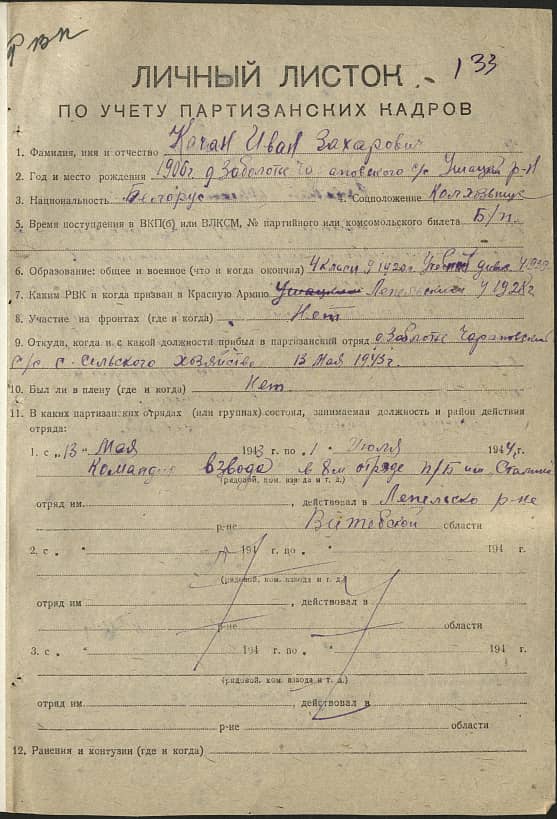 РВК
133
ЛИЧНЫЙ ЛИСТОК
ПО УЧЕТУ ПАРТИЗАНСКИХ КАДРОВ
1. Фамилия, имя и отчество Качан Иван Захарович
2. Год и место рождения 1906 г. д Заболотье с/с Ушацкий р-н
3. Национальность Белорус 4. Соцположение Колхозник
5. Время поступления в ВКП(б) или ВЛКСМ, № партийного или комсомольского билета Б/п.
6. Образование: общее и военное (что и когда окончил) 4 класи у 1920 г.
7. Каким РВК и когда призван в Красную Армию Ушацким Лепельским у 1928 г
8. Участие на фронтах (где и когда) Нет
9. Откуда, когда и с какой должности прибыл в партизанский отряд д Заболотье
с/с с. Сельского хозяйства 13 Мая 1943 г.
10. Был ли в плену (где и когда) Нет
11. В каких партизанских отрядах (или группах) состоял, занимаемая должность и район действия
отряда:
1. с „13" Мая 1943 г. по „1" Июля 1944 г.
Командир взвода в 8м отряде п/б им. Сталина
(рядовой, ком. взвода и т. д.)
отряд им. , действовал в Лепельско р-не
р-не Витебской области
2. с „ " 194 г. по „ " 194 г.
(рядовой, ком. взвода и т. д.)
отряд им. , действовал в
р-не области
3. с „ " 194 г. по „ " 194 г.
(рядовой, ком. взвода и т. д.)
отряд им. , действовал в
р-не области
12. Ранения и контузии (где и когда)